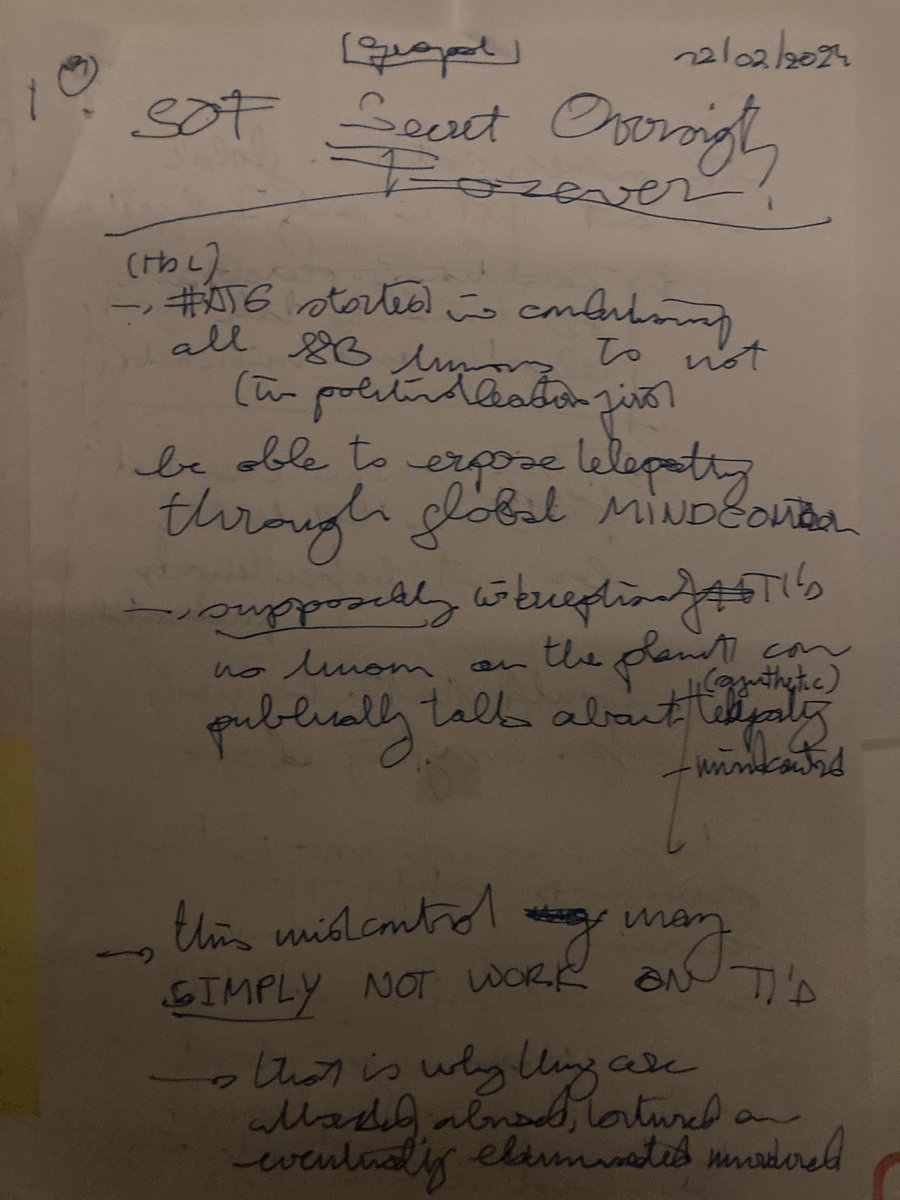 22/02/2024
1
SOF Secret Oversight
Forever!
(HBL)
started in
all 8B humans to not
(the political leaders first)
be able to expose telepathy
through global MINDCONTROL
supposedly with exception of TI's
no human on the planet can
(synthetic)
publically talk about telepathy
- mindcontrol
→ this midcontrol may
SIMPLY NOT WORK ON TI'S
→ that is why they are
abused, tortured an
eventually eliminated murdered